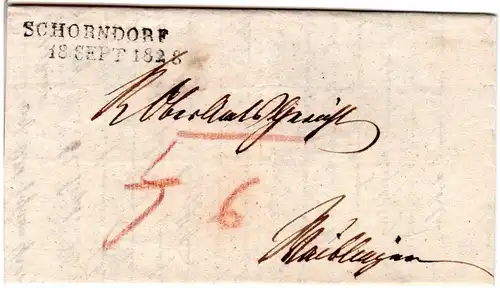 SCHORNDORF
18 SEPT 1828
K Oberamts Gericht
6
Waiblingen